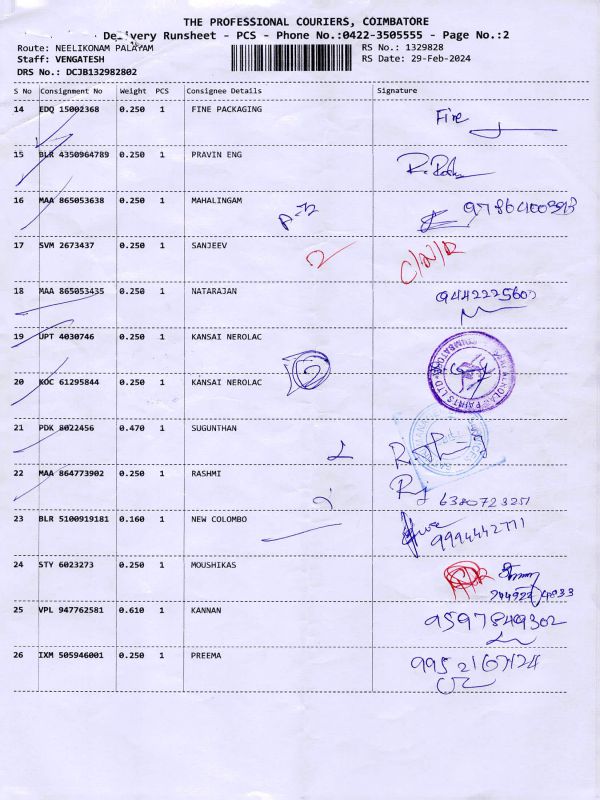 THE PROFESSIONAL COURIERS, COIMBATORE
Delivery Runsheet - PCS - Phone No.:0422-3505555 - Page No.:2
Route: NEELIKONAM PALAYAM RS No.: 1329828
Staff: VENGATESH RS Date: 29-Feb-2024
DRS No.: DCJB132982802
S No Consignment No Weight PCS Consignee Details Signature
14 EDQ 15002368 0.250 1 FINE PACKAGING Fine
15 BLR 4350964789 0.250 1 PRAVIN ENG
16 MAA 865053638 0.250 1 MAHALINGAM
17 SVM 2673437 0.250 1 SANJEEV
18 MAA 865053435 0.250 1 NATARAJAN
19 UPT 4030746 0.250 1 KANSAI NEROLAC
20 KOC 61295844 0.250 1 KANSAI NEROLAC
21 PDK 8022456 0.470 1 SUGUNTHAN
22 MAA 864773902 0.250 1 RASHMI
6380723251
23 BLR 5100919181 0.160 1 NEW COLOMBO
9994442711
24 STY 6023273 0.250 1 MOUSHIKAS
25 VPL 947762581 0.610 1 KANNAN 9597849302
26 IXM 505946001 0.250 1 PREEMA